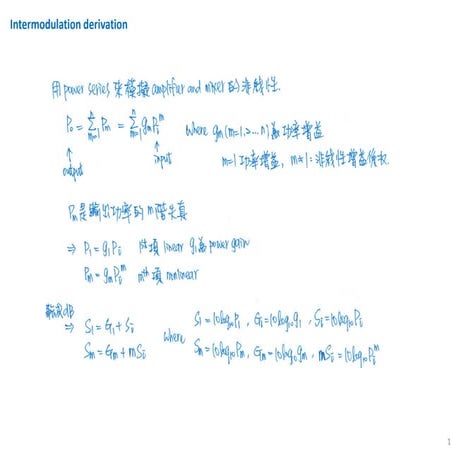 Intermodulation derivation
用 power series 來模擬 amplifier and mixer 的非線性.
P₀ = Σₘ₌₁ⁿ Pₘ = Σₘ₌₁ⁿ gₘPᵢᵐ where gₘ (m=1,2,... n) 為功率增益
↑ output ↑ input m=1 功率增益, m≠1: 非線性增益係數
Pₘ是輸出功率的 m 階失真
⇒ P₁ = g₁Pᵢ 1st 項 linear g₁為 power gain
Pₘ = gₘPᵢᵐ mth 項 nonlinear
取dB
⇒ S₁ = G₁ + Sᵢ where S₁ = 10log₁₀P₁, G₁ = 10log₁₀g₁, Sᵢ = 10log₁₀Pᵢ
Sₘ = Gₘ + mSᵢ Sₘ = 10log₁₀Pₘ, Gₘ = 10log₁₀gₘ, mSᵢ = 10log₁₀Pᵢᵐ
1